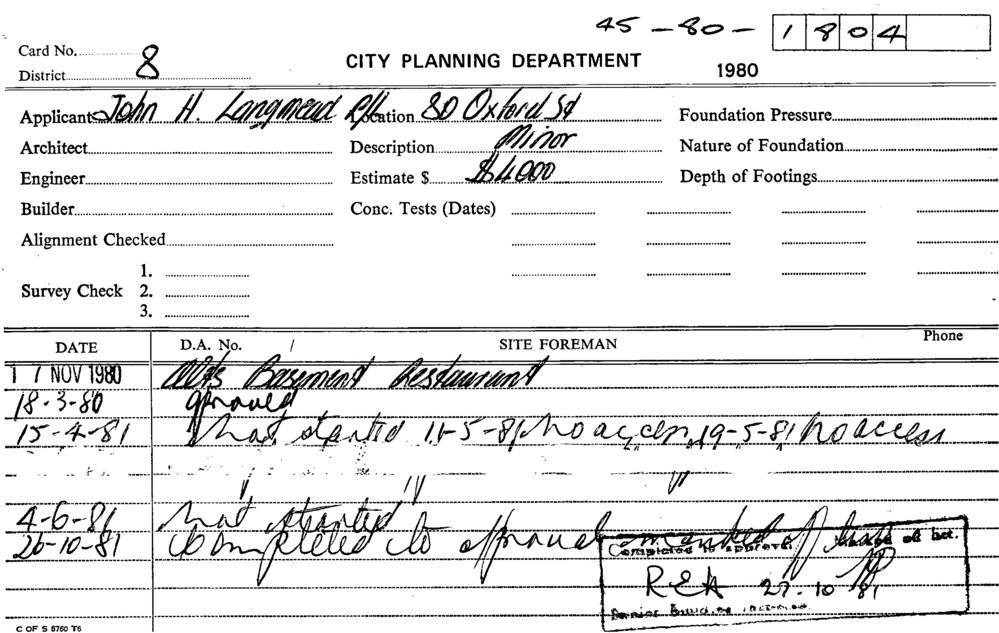 45-80- 1804
Card No. 
District 8
CITY PLANNING DEPARTMENT
1980
Applicant John H. Langmead P/L Location 80 Oxford St Foundation Pressure
Architect Description Minor Nature of Foundation
Engineer Estimate $ $4000 Depth of Footings
Builder Conc. Tests (Dates)
Alignment Checked
1.
Survey Check 2.
3.
DATE D.A. No. / SITE FOREMAN Phone
17 NOV 1980 Alts Basement Restaurant
18-3-80 approved
15-4-81 not started 11-5-81 no access, 19-5-81 no access
" " "
4-6-81 not started
26-10-81 completed to approval marked off
Completed to approval. Marked off list.
REA 27.10 81
Senior
C OF S 6760 T6